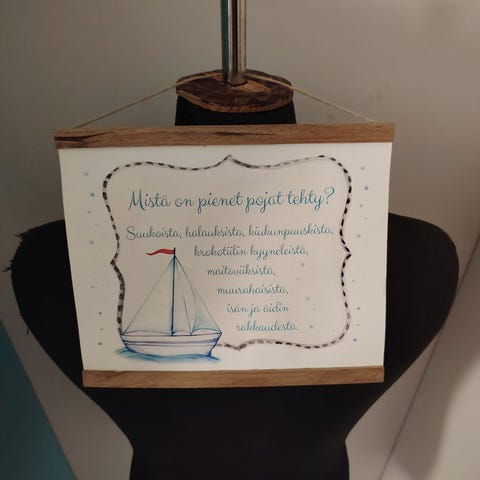 Mistä on pienet pojat tehty?
Suukoista, halauksista, kiukunpuuskista,
krokotiilin kyyneleistä,
maitoviiksistä,
muurahaisista,
isän ja äidin
rakkaudesta.